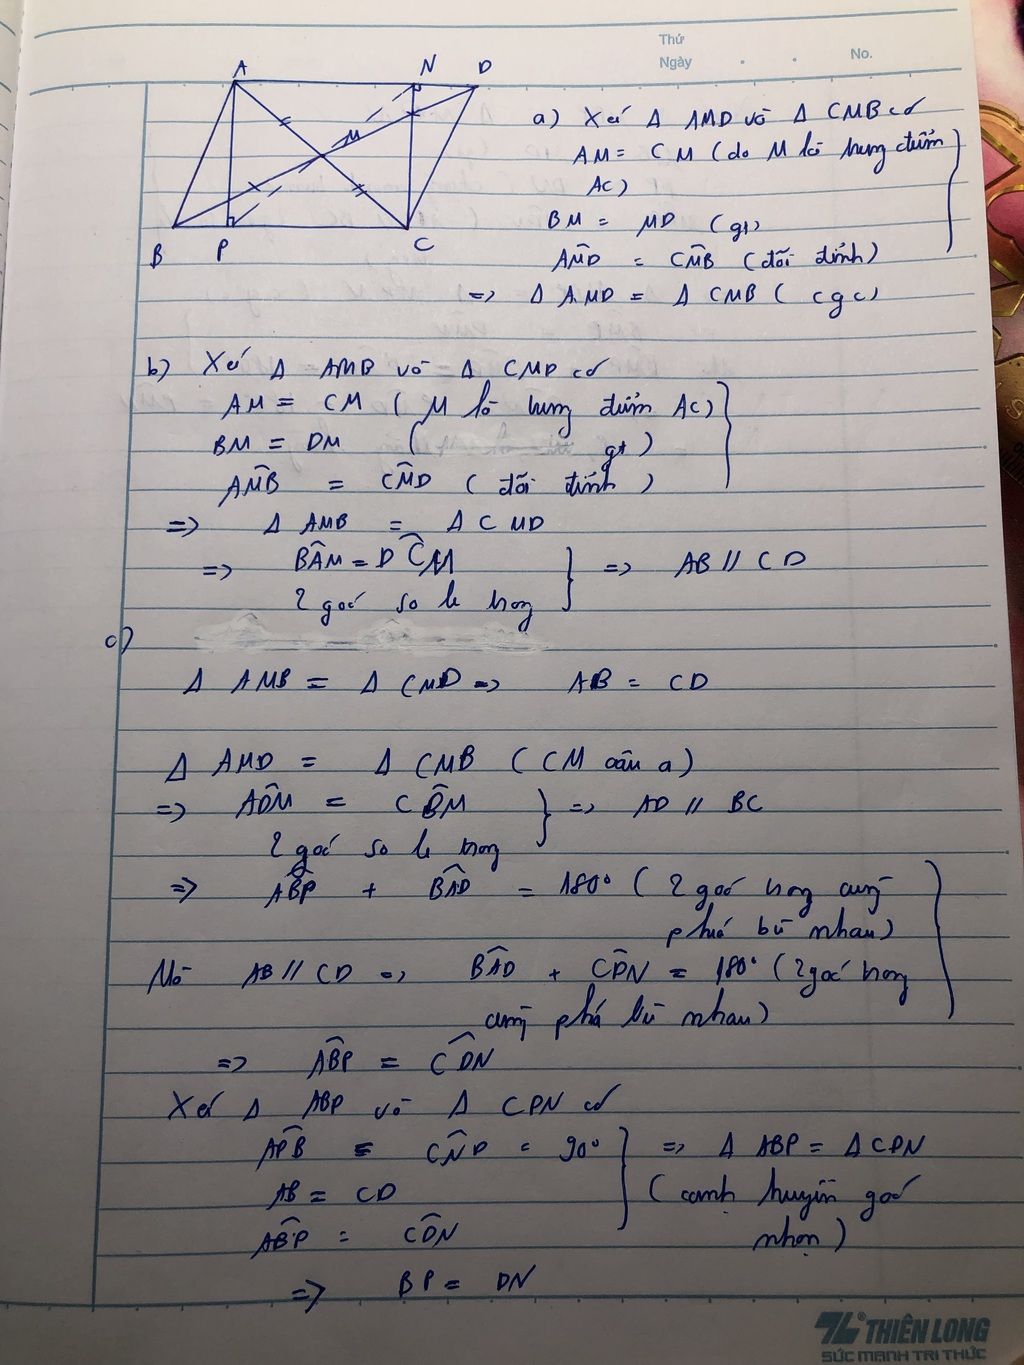 Thứ
Ngày . . No.
A N D
M
B P C
a) Xét Δ AMD và Δ CMB có
AM = CM (do M là trung điểm
AC)
BM = MD (gt)
AM̂D = CM̂B (đối đỉnh)
=> Δ AMD = Δ CMB (cgc)
b) Xét Δ AMB và Δ CMD có
AM = CM (M là trung điểm AC)
BM = DM (gt)
AM̂B = CM̂D (đối đỉnh)
=> Δ AMB = Δ CMD
=> BÂM = DĈM => AB // CD
2 góc so le trong
c)
Δ AMB = Δ CMD => AB = CD
Δ AMD = Δ CMB (CM câu a)
=> AD̂M = CB̂M => AD // BC
2 góc so le trong
=> AB̂P + BÂD = 180° (2 góc trong cùng
phía bù nhau)
Mà AB // CD => BÂD + CD̂N = 180° (2 góc trong
cùng phía bù nhau)
=> AB̂P = CD̂N
Xét Δ ABP và Δ CDN có
AP̂B = CN̂D = 90° => Δ ABP = Δ CDN
AB = CD (cạnh huyền góc
AB̂P = CD̂N nhọn)
=> BP = DN
TL THIÊN LONG
SỨC MẠNH TRI THỨC